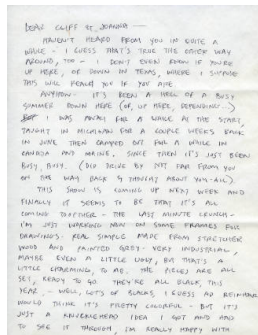 DEAR CLIFF & JOANNA —
HAVEN'T HEARD FROM YOU IN QUITE A
WHILE - I GUESS THAT'S TRUE THE OTHER WAY
AROUND, TOO - I DON'T EVEN KNOW IF YOU'RE
UP HERE, OR DOWN IN TEXAS, WHERE I SUPPOSE
THIS WILL REACH YOU IF YOU ARE.
ANYHOW - IT'S BEEN A HELL OF A BUSY
SUMMER DOWN HERE (OR, UP HERE, DEPENDING...)
I WAS AWAY FOR A WHILE AT THE START,
TAUGHT IN MICHIGAN FOR A COUPLE WEEKS BACK
IN JUNE THEN CAMPED OUT FOR A WHILE IN
CANADA AND MAINE. SINCE THEN IT'S JUST BEEN
BUSY, BUSY. (DID DRIVE BY NOT FAR FROM YOU
ON THE WAY BACK & THOUGHT ABOUT YOU-ALL)
THIS SHOW IS COMING UP NEXT WEEK AND
FINALLY IT SEEMS TO BE THAT IT'S ALL
COMING TOGETHER - THE LAST MINUTE CRUNCH -
I'M JUST WORKING NOW ON SOME FRAMES FOR
DRAWINGS. REAL SIMPLE MADE FROM STRETCHER
WOOD AND PAINTED GREY - VERY INDUSTRIAL,
MAYBE EVEN A LITTLE UGLY, BUT THAT'S A
LITTLE CHARMING, TO ME. THE PIECES ARE ALL
SET, READY TO GO. THEY'RE ALL BLACK, THIS
YEAR - WELL, LOTS OF BLACKS, I GUESS AD REINHARDT
WOULD THINK IT'S PRETTY COLORFUL - BUT IT'S
JUST A KNUCKLEHEAD IDEA I GOT AND HAD
TO SEE IT THROUGH, I'M REALLY HAPPY WITH